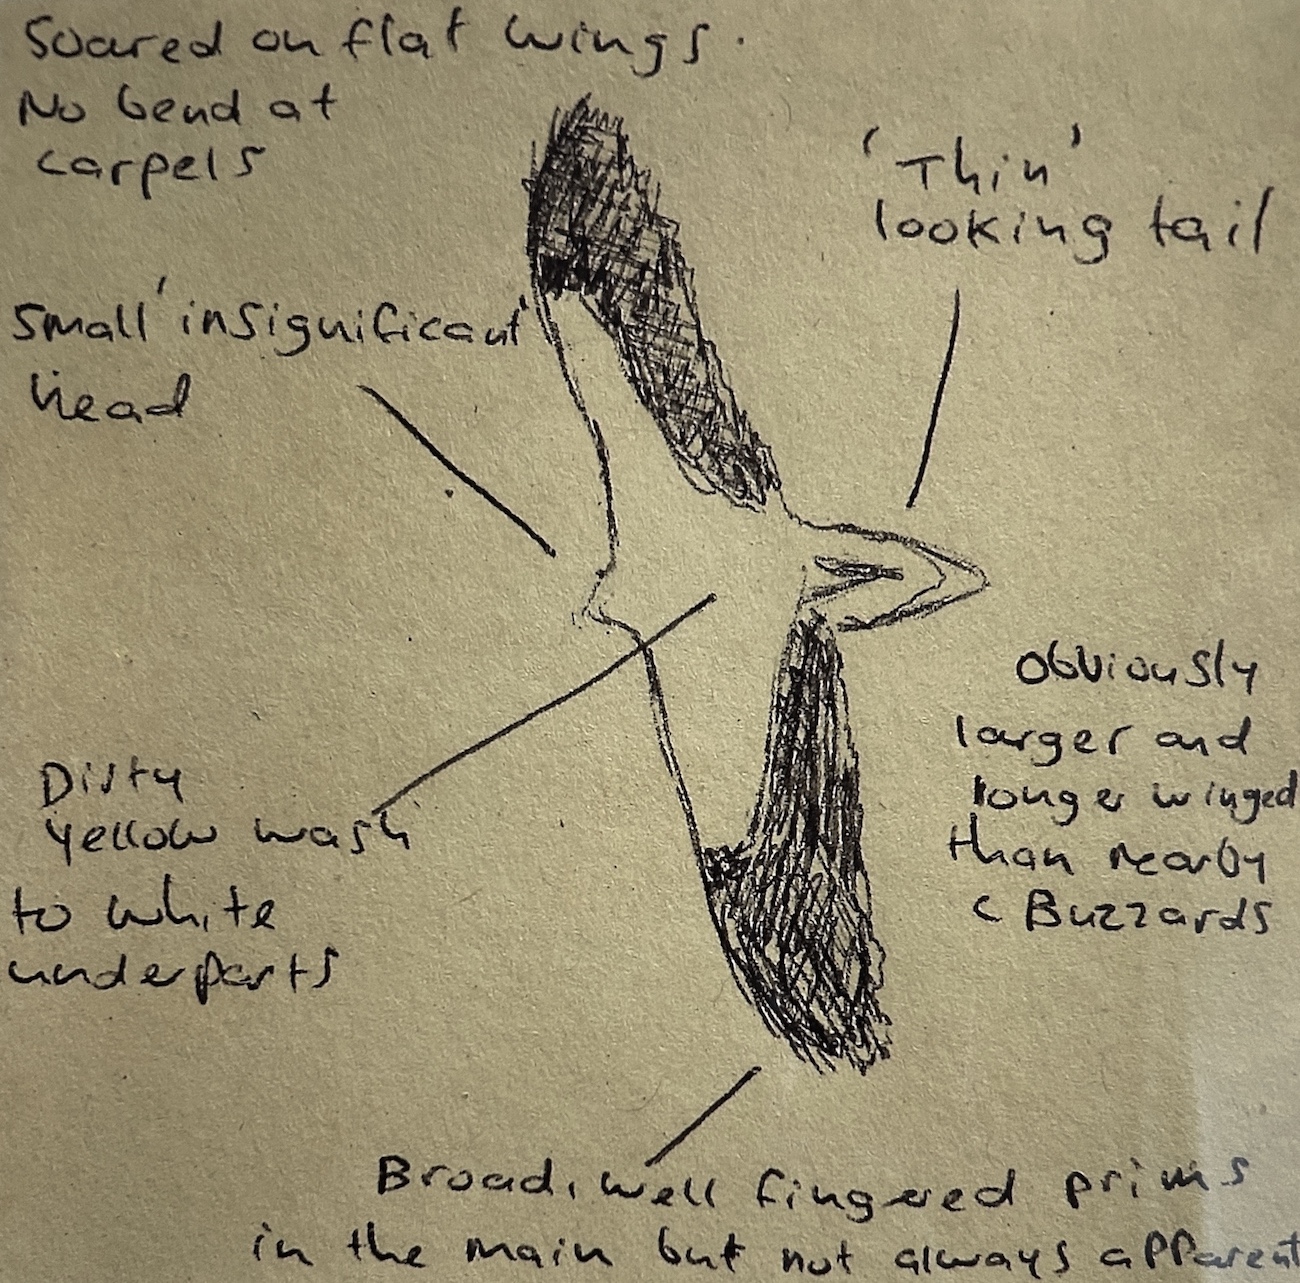 Soared on flat wings.
No bend at
carpels
'Thin'
looking tail
Small 'insignificant'
head
Obviously
larger and
longer winged
than nearby
C Buzzards
Dirty
yellow wash
to white
underparts
Broad, well fingered prims
in the main but not always apparent